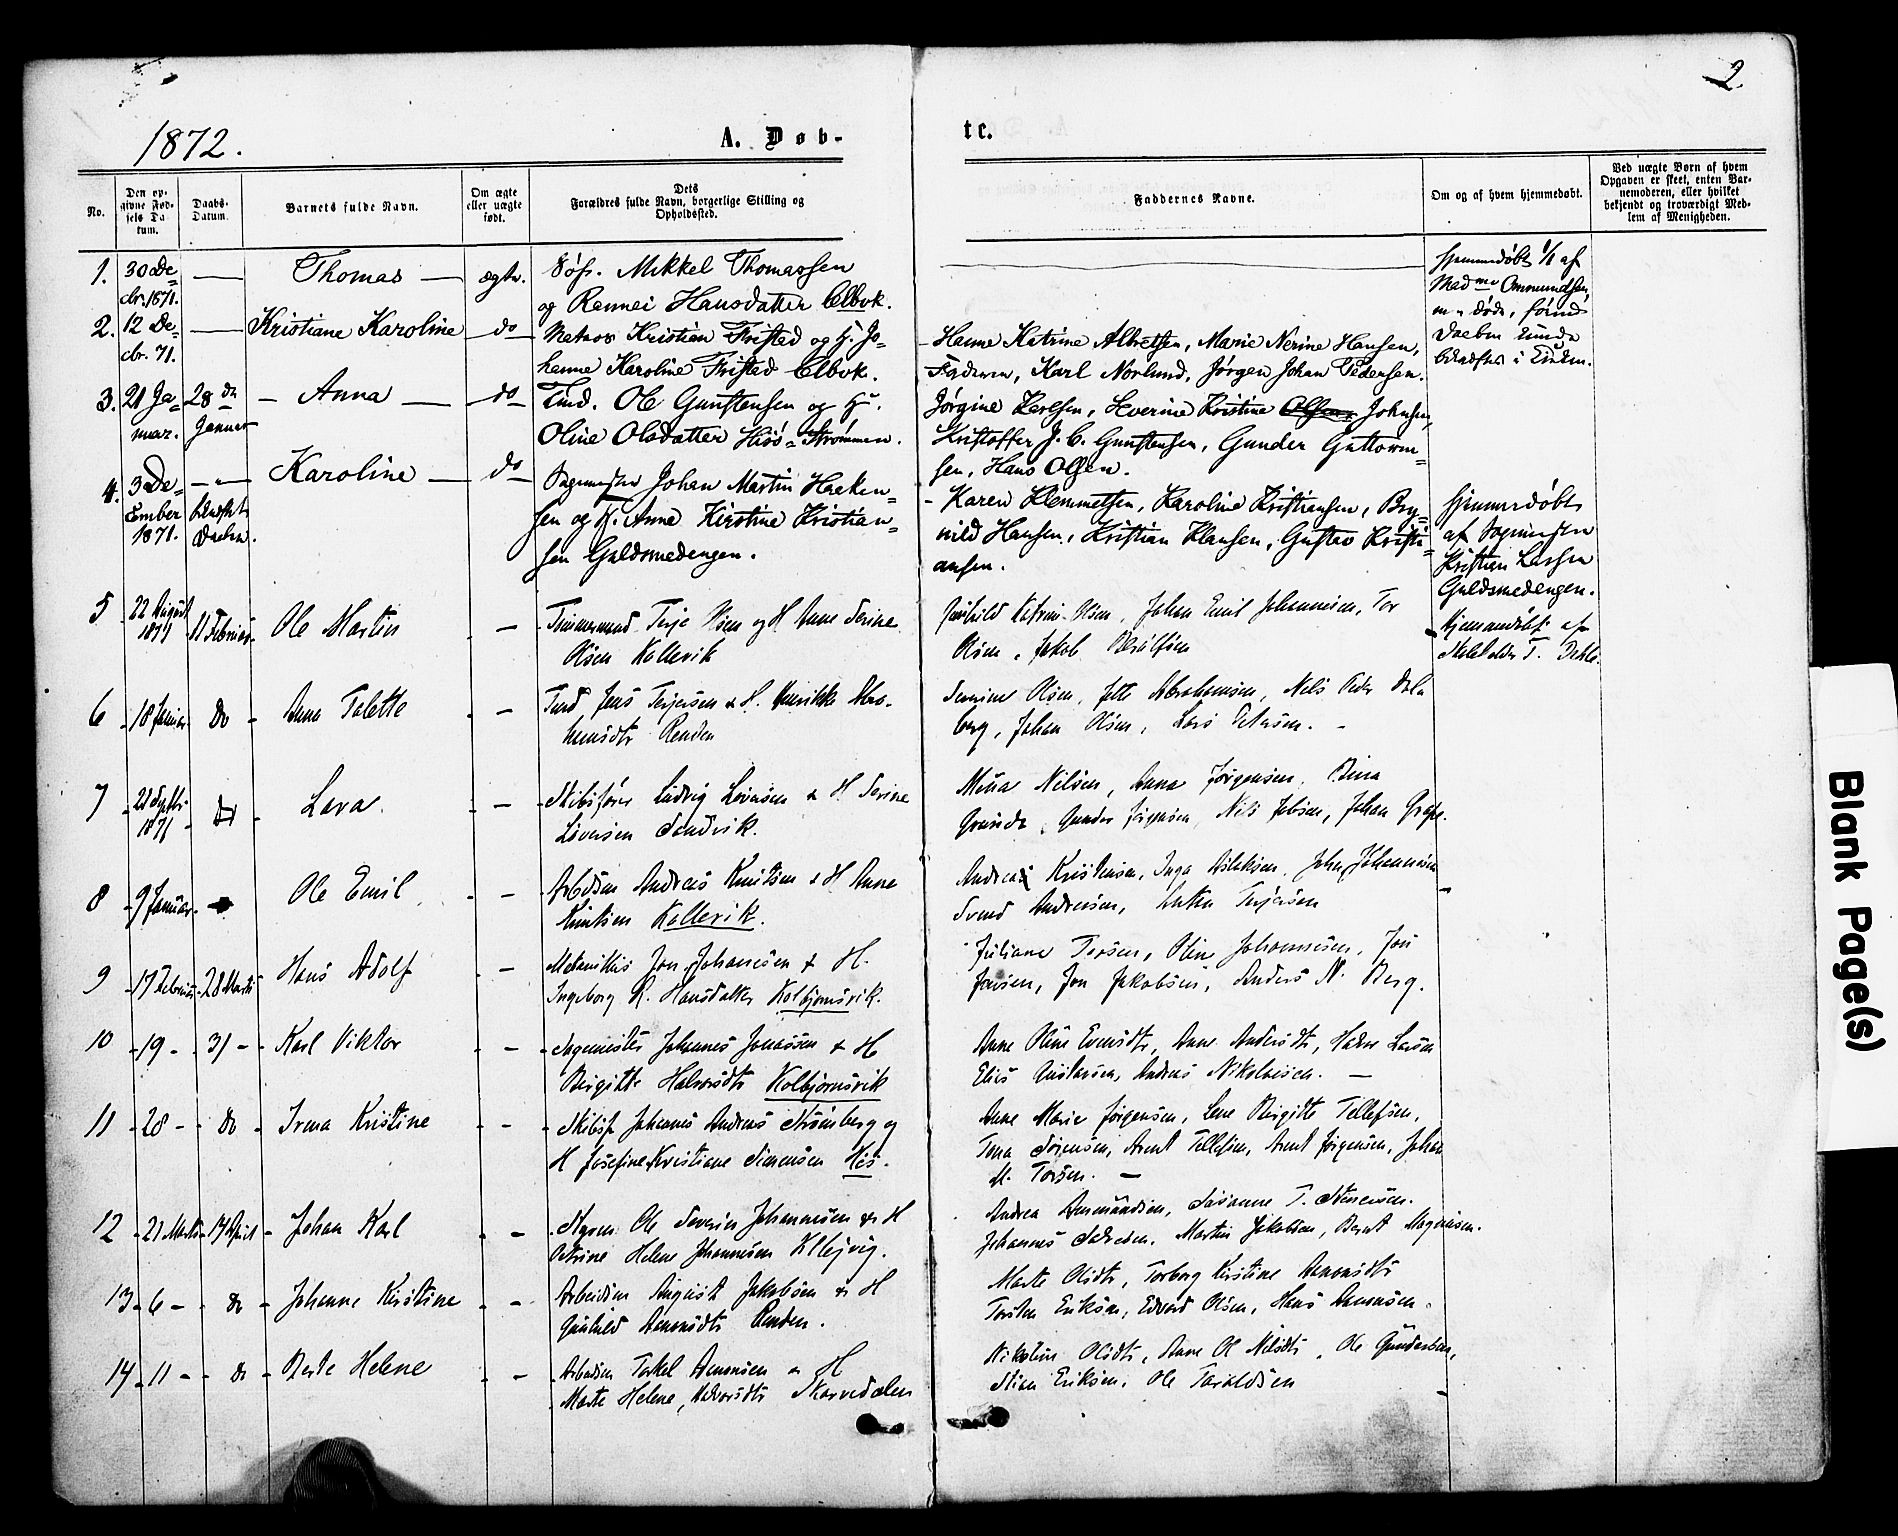 2.
1872.
A. Døb-
te.
No.
Den op-
givne Fød-
sels Da
tum.
Daabs-
Datum.
Barnets fulde Navn.
Om ægte
eller uægte
født.
Dets
Forældres fulde Navn, borgerlige Stilling og
Opholdssted.
Faddernes Navne.
Om og af hvem hjemmedøbt.
Ved uægte Børn af hvem
Opgaven er skeet, enten Bar-
nemoderen, eller hvilket
bekjendt og troværdigt Med-
lem af Menigheden.
1. 30 De= — Thomas — ægte. Søfr. Mikkel Thomassen
cbr. 1871. og Rennei Hansdatter Elbvk.
Hjemmedøbt af
Madme Ommundsen,
døde, førend
Daaben kunde
i Kirken.
2. 12 De- — Kristiane Karoline do Matros Kristian Fristad og H. Jo-
cbr. 71. hanne Karoline Fristad Elbvk.
Hanne Katrine Albretsen, Marie Nerine Hansen,
Faderen, Karl Norlund, Jørgen Johan Pedersen.
3. 21 Ja= 28 de — Anna — do Tmd. Ole Gunstensen og Hu.
nuar. Januar Oline Olsdatter Hisø=Strømmen.
Jørgine Karlsen, Severine Kristine Olsen, Johnsen,
Kristoffer J. C. Gunstensen, Gunder Guttorm=
sen, Hans Olsen.
4. 3 De= Karoline — do Sagmester Johan Martin Haaken=
cember og H. Anne Kirstine Kristian=
1871. Daaben. sen Guldsmedengen.
Karen Klemmetsen, Karoline Kristiansen, Bry=
nild Hansen, Kristian Klausen, Gustav Kristi=
ansen.
Hjemmedøbt
af Sagmester
Kristian Larsen
Guldsmedengen.
5 22 August 11 Februar Ole Martin — Tømmermand Terje Olsen og H Anne Serine
1871 Olsen Kollevik
Gunhild Katrine Olsen, Johan Emil Johannesen, Tor
Olsen, Jakob
Hjemmedøbt af
Skoleholder T. Dahle.
6 18 Januar do Anne Talette — Tmd Jens Terjesen & H. Henrikke Abra-
hamsdtr Renden
Severine Olsen, Jette Abrahamsen, Nils Peder Dale
berg, Johan Olsen, Lars Petersen. -
7 21 Septbr. do Lava. — Skibsfører Ludvig Løversen & H. Serine
1871 Løversen Sandvik.
Mina Nilsen, Anna Jørgensen, Dina
Gunder Jørgensen, Nils Jebsen, Johan
8 9 Januar Ole Emil — Arbdsm Andreas Knutsen & H Anne
Knutsen Kollevik.
Andreas Kristensen, Inga Aslaksen, Johan Johannesen
Svend Andersen, Terjesen
9 17 Februar 28 Marts Hans Adolf — Mekanikus Jon Johannesen & H.
Ingeborg R. Hansdatter Kolbjørnsvik.
Juliane Torsen, Oline Johannesen, Jon
Jensen, Jon Jakobsen, Anders N. Berg.
10 19 - 31 - Karl Viktor — Sagmester Johannes Jonassen & H
Birgitte Halvorsdtr Kolbjørnsvik
Anne Oline Evensdtr, Anne Andersdtr, Halvor Larsen
Elias Gustavsen, Andreas Nikolaisen. —
11 28 - do Irma Kristine — Skibsf Johannes Andreas Strømberg og
H Josefine Kristiane Simonsen His.
Anne Marie Jørgensen, Lene Birgitte Tellefsen,
Tona Sørensen, Arent Tellefsen, Arent Jørgensen, Johan
M. Torsen. —
12 21 Marts 14 April Johan Karl — Styrm Ole Severin Johannesen & H
Petrine Helene Johannesen Kllejvig.
Andrea Ammundsen, Susanne T. Steensen.
Johannes Andresen, Martin Jakobsen, Berent Mogensen.
13 6 - do Johanne Kirstine — Arbeidsm August Jakobsen & H
Gunhild Aanonsdtr Renden.
Marte Olsdtr, Torborg Kirstine Aanonsdtr
Torsten Eriksen, Edvard Olsen, Hans Aanonsen.
14 11 - do Berte Helene — Arbeidsm Torkel Aanonsen & H
Marte Helene Halvorsdtr Skarvedalen
Nikoline Olsdtr, Anne Nilsdtr, Ole Gundersen,
Stian Eriksen, Ole Taraldsen
Blank Page(s)